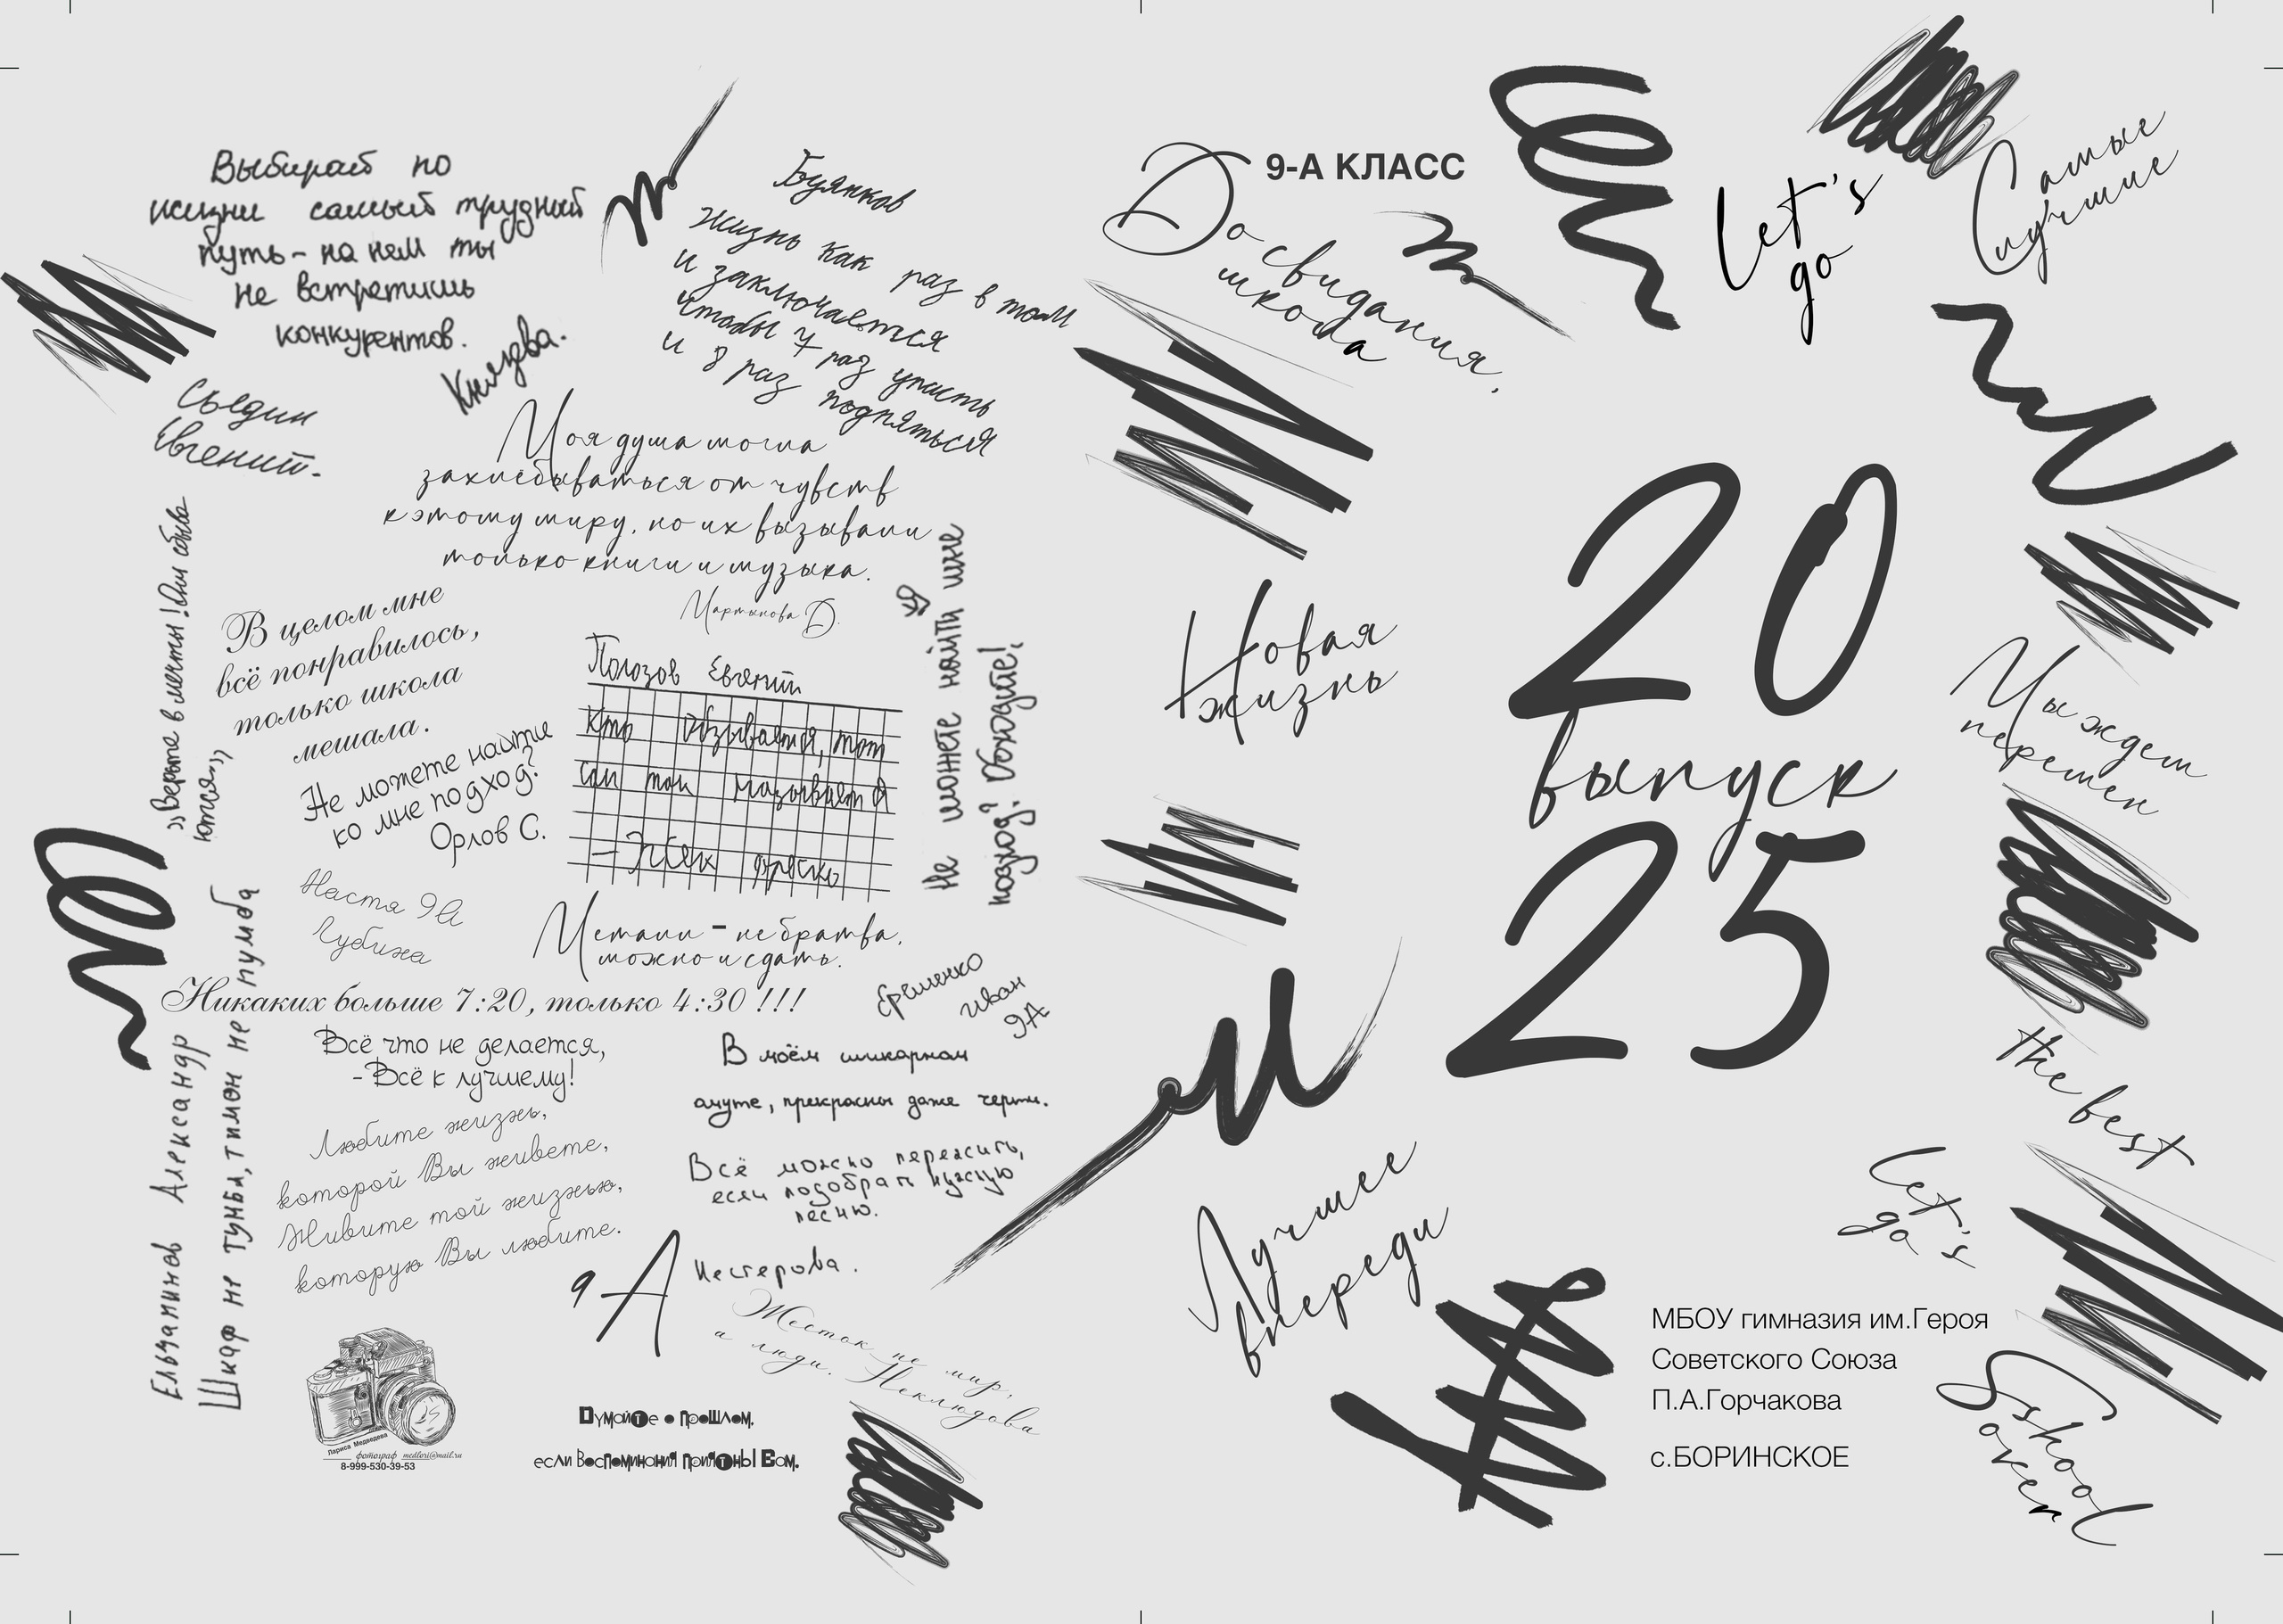 Выбирай по
жизни самый трудный
путь - на нем ты
не встретишь
конкурентов.
Князева.
Буянков
Жизнь как раз в том
и заключается
чтобы 7 раз упасть
и 8 раз подняться
Сьедин
Евгений.
Моя душа могла
захлёбываться от чувств
к этому миру, но их вызывали
только книги и музыка.
Мартынова Д.
„Верьте в мечты! Они сбыва
ются"
В целом мне
всё понравилось,
только школа
мешала.
Не можете найти
ко мне подход?
Орлов С.
Полозов Евгений
Кто обзывается, тот
сам так называется
- Жак Фреско
Не можете найти мне
подход? Обождите!
Настя 9А
Губина
Металл - не братва,
можно и сдать.
Еременко
Иван
9А
Никаких больше 7:20, только 4:30 !!!
Всё что не делается,
- Всё к лучшему!
Любите жизнь,
которой Вы живете,
Живите той жизнью,
которую Вы любите.
В моём шикарном
омуте, прекрасны даже черти.
Всё можно пережить,
если подобрать нужную
песню.
Нестерова.
9 А
Ельчанинов Александр
Шкаф не тумба, тимон не пумба
Жесток не мир,
а люди. Неклюдова
Лариса Медведева
фотограф medlori@mail.ru
8-999-530-39-53
Думайте о прошлом,
если Воспоминания приятны Вам.
9-А КЛАСС
До свидания,
школа
Let's
go
Самые
лучшие
Новая
жизнь
20
выпуск
25
Мы ждем
перемен
the best
Let's
go
Лучшее
впереди
МБОУ гимназия им.Героя
Советского Союза
П.А.Горчакова
с.БОРИНСКОЕ
Sshool
over